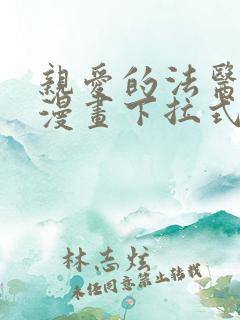 親愛的法醫
漫畫下拉式
林志炫
未經同意禁止轉載